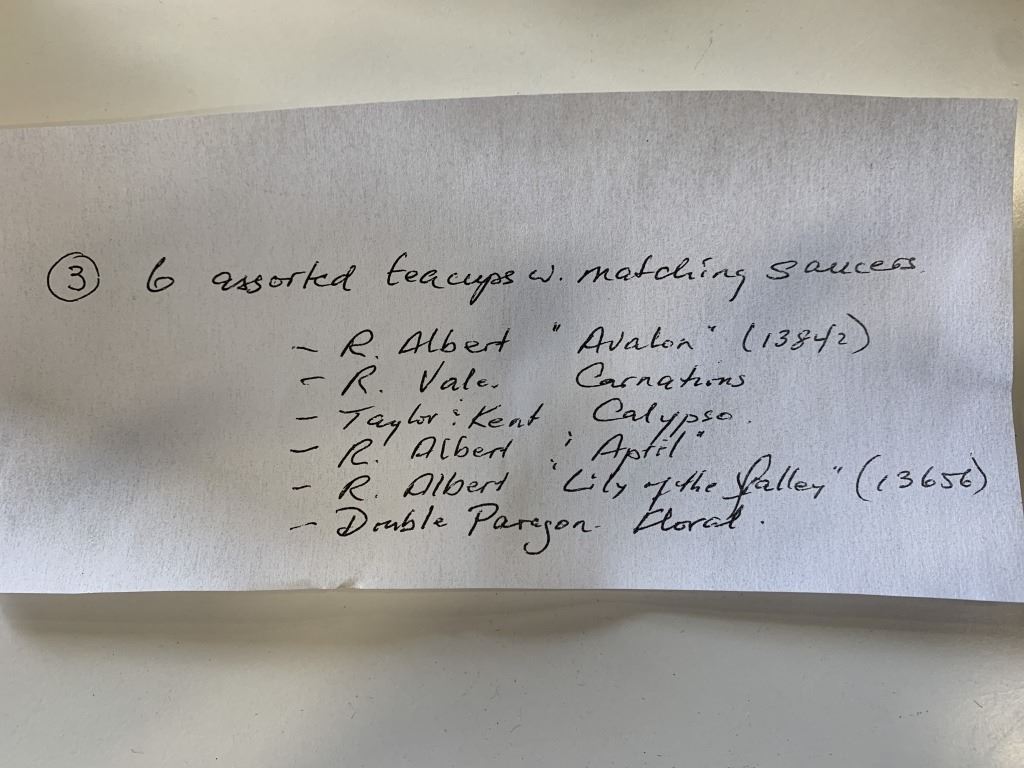 ③ 6 assorted teacups w. matching saucers.
- R. Albert "Avalon" (13842)
- R. Vale. Carnations
- Taylor & Kent Calypso.
- R. Albert "April"
- R. Albert "Lily of the Valley" (13656)
- Double Paragon. Floral.